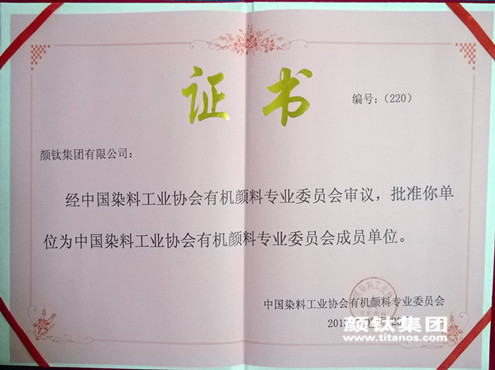 证书
编号:（220）
颜钛集团有限公司：
经中国染料工业协会有机颜料专业委员会审议，批准你单
位为中国染料工业协会有机颜料专业委员会成员单位。
中国染料工业协会有机颜料专业委员会
颜钛集团
www.titanos.com